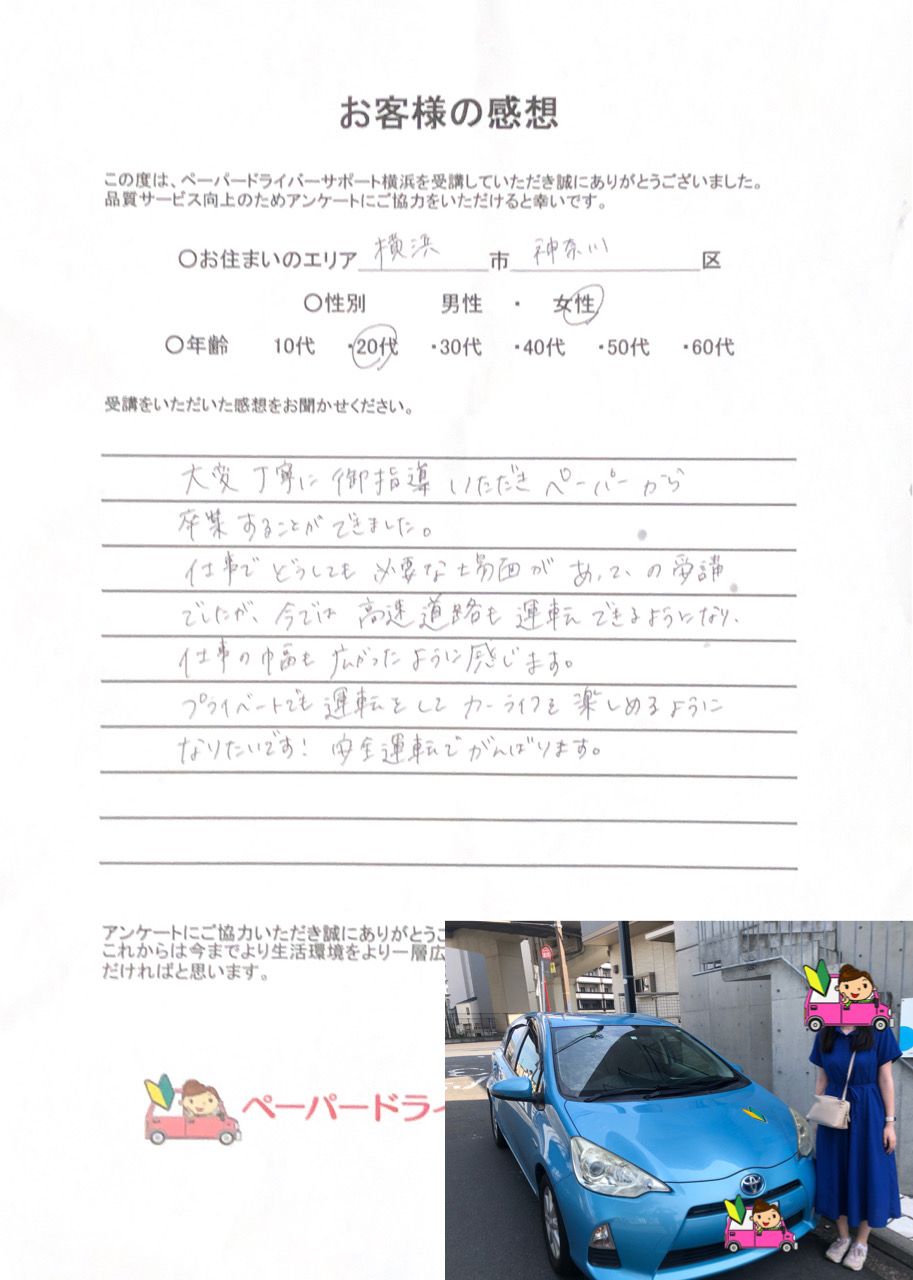 お客様の感想
この度は、ペーパードライバーサポート横浜を受講していただき誠にありがとうございました。
品質サービス向上のためアンケートにご協力をいただけると幸いです。
〇お住まいのエリア 横浜 市 神奈川 区
〇性別 男性 ・ 女性
〇年齢 10代 ・20代 ・30代 ・40代 ・50代 ・60代
受講をいただいた感想をお聞かせください。
大変丁寧に御指導いただきペーパーから
卒業することができました。
仕事でどうしても必要な場面があっての受講
でしたが、今では高速道路も運転できるようになり、
仕事の幅も広がったように感じます。
プライベートでも運転をしてカーライフを楽しめるように
なりたいです！安全運転でがんばります。
アンケートにご協力いただき誠にありがとうご
これからは今までより生活環境をより一層広
だければと思います。
ペーパードライ